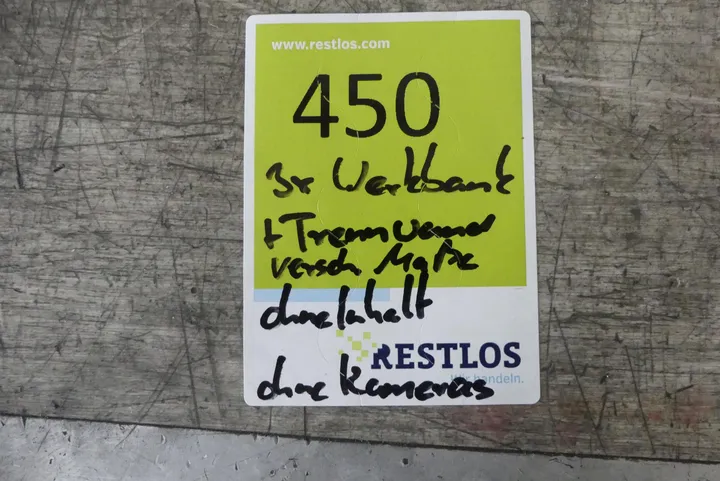 www.restlos.com
450
3x Werkbank
+ Trennwand
versch Maße
ohne Inhalt
RESTLOS
Wir handeln.
ohne Kameras